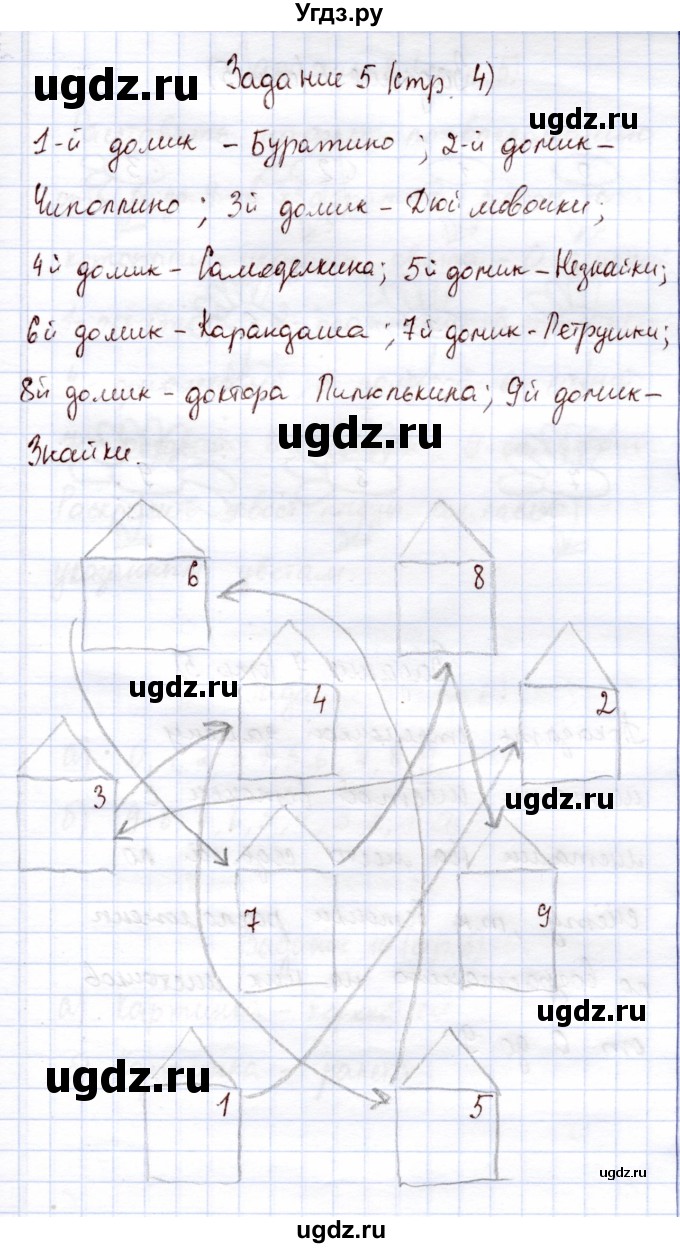 Угдз.ру
Задание 5 (стр. 4)
ugdz.ru
ugdz.ru
1-й домик – Буратино ; 2-й домик –
Чиполлино ; 3й домик – Дюймовочки;
4й домик – Самоделкина; 5й домик – Незнайки;
6й домик – Карандаша ; 7й домик - Петрушки;
8й домик – доктора Пилюлькина; 9й домик –
ugdz.ru
Знайки.
6
8
ugdz.ru
4
2
3
ugdz.ru
7
9
ugdz.ru
ugdz.ru
1
5
ugdz.ru
ugdz.ru